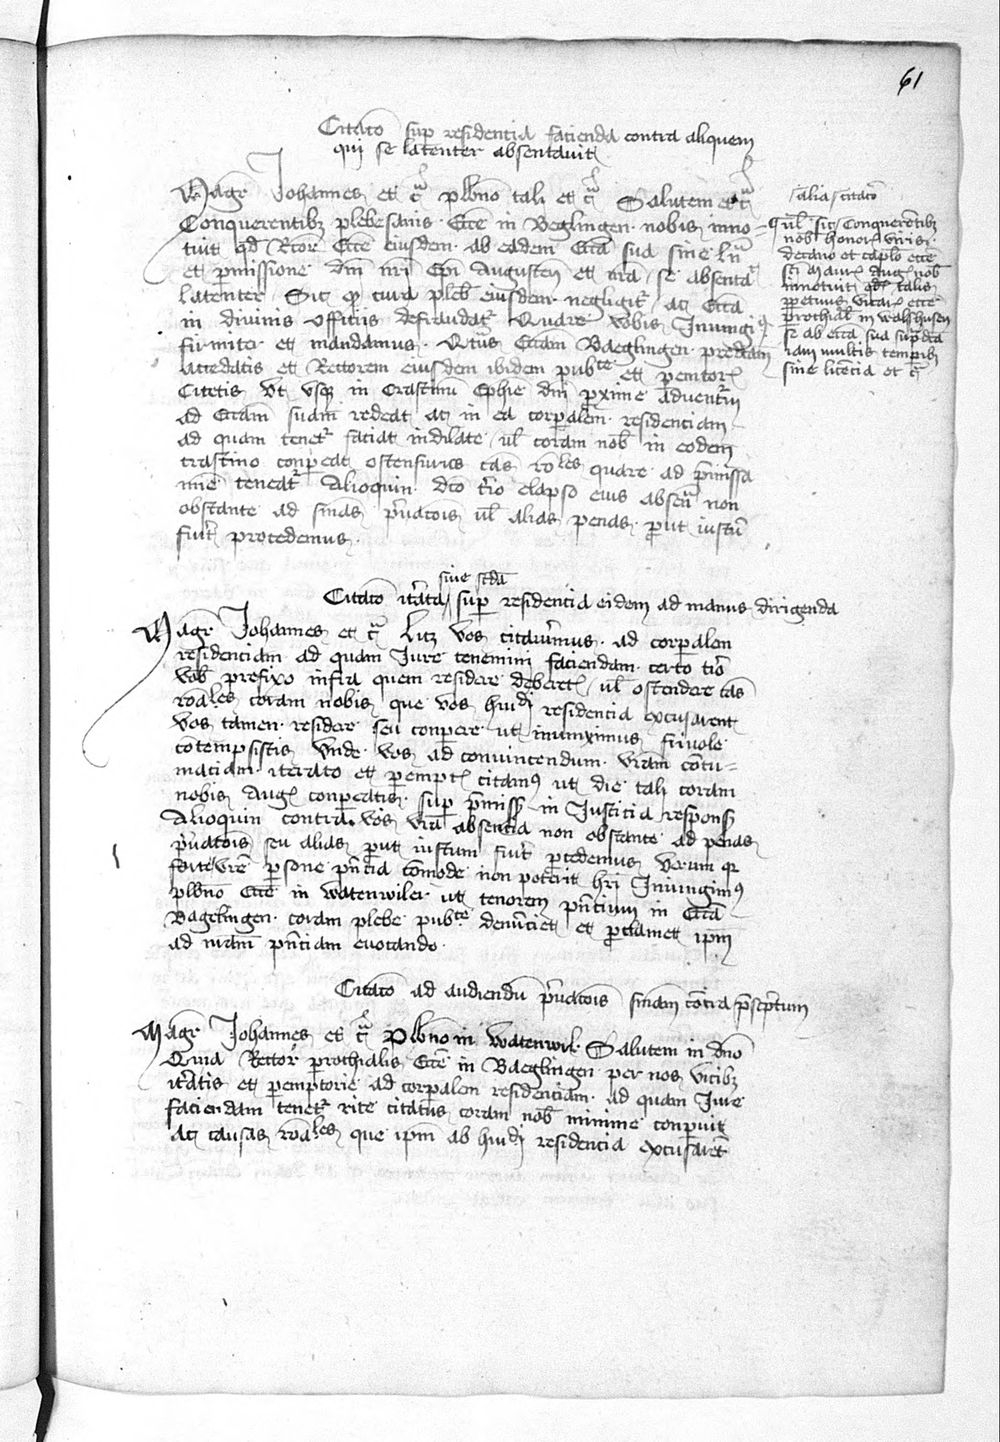 61
Citatō sup residencia facienda contra aliquem
qui se latenter absentavit
Magr Johannes et c̄ plbno tali et c̄ Salutem et c̄
Conquerentibz plebesanis Ecce in Beglingen nobis inno-
tuit qd Rcor Ecce eiusdem ab eadem Ecca sua sine lnā
et pmissione dni nri Epi Augusten et nra se absentat
latenter Sic qz cura pleb eiusdem negligit ac Ecca
in divinis officiis defraudat Quare vobis Iniungim9
firmit et mandamus Qtus Eccam Baeglingen predcam
accedatis et Rectorem eiusdem ibidem publce et pemtor
Citetis Vt usqz in Crastinū Ephie dni pxime adventur
ad Eccam suam redeat ac in ea corpalem residenciam
ad quam tenet faciat indilate vl coram nob in eodem
crastino conpeat ostensurus cās rōles quare ad pmissa
mie teneat Alioquin dco tio elapso eius absen non
obstante ad snias pvatois vl alias penas put iustū
fuit procedemus
alia citatō
vl sic Conquerentibz
nob honor viris
decano et caplo ecce
sci Mauri Aug nob
innotuit qd talis
ppetuus vicari ecce
prochial in walshusen
se ab ecca sua supdca
iam multis tempibz
sine licēcia et c̄
sive scda
Citatō itata sup residencia eidem ad manus dirigenda
Magr Johannes et c̄ Licz vos citavimus ad corpalem
residenciam ad quam Iure tenemini faciendam certo tio
vob prefixo infra quem residere deberet vl ostendere cās
rōales coram nobis que vos huidi residencia excusarent
Vos tamen residere seu conpere ut iniunximus frivole
cōtempsistis Vnde vos ad convincendum vram cōtu-
maciam iterato et pempt citam9 ut die tali coram
nobis Aug conpeatis sup pmiss in Iusticia respons
Alioquin contra vos vra absentia non obstante ad penas
pvatois seu alias put iustum fuit pcedemus Verum qr
forte vre psone pncia cōmode non poterit hri Iniungim9
plbno Ecce in watenwiler ut tenorem pncium in Ecca
Bagelingen coram plebe publce denūciet et pclamet ipm
ad nram pnciam evocando
Citatō ad audiendū pvatois sniam cōtra pscptum
Magr Johannes et c̄ Plbno in Watenwil Salutem in dno
Quia Rector prochialis Ecce in Baeglingen per nos vicibz
itatis et pemptorie ad corpalem residenciam ad quam Iure
faciendam tenet rite citatus coram nob minime conpuit
ac causas rōales que ipm ab huidi residencia excusaret